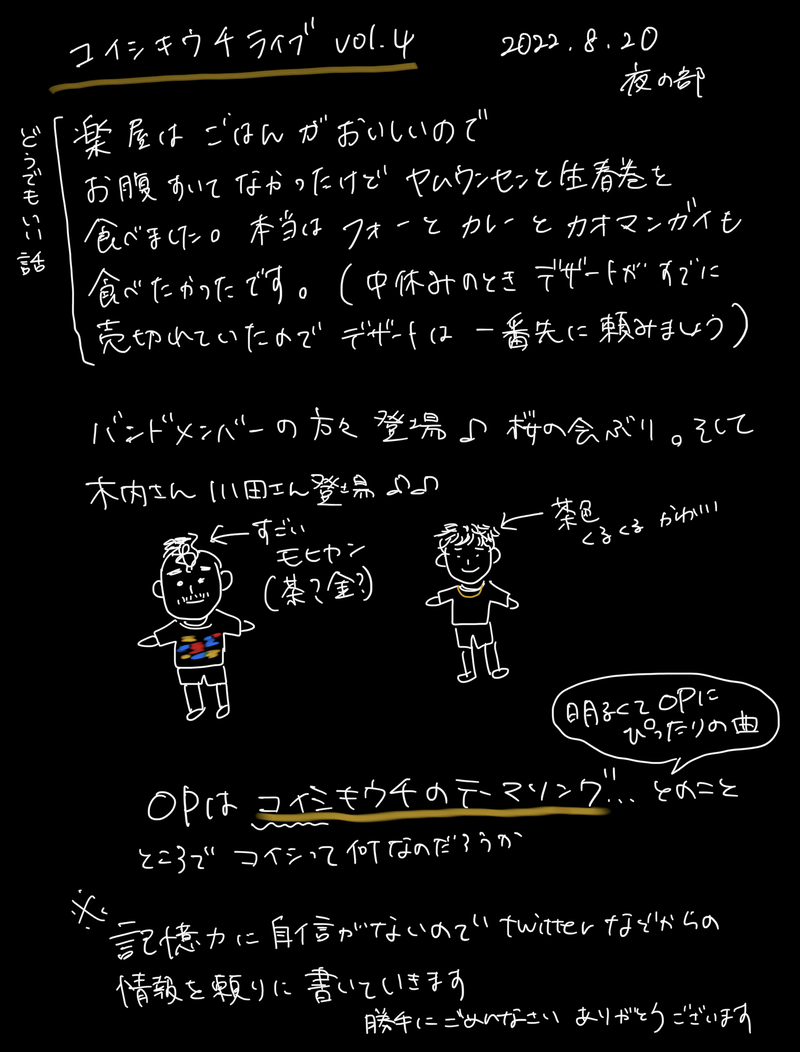 コイシキウチライブ vol.4
2022.8.20
夜の部
どうでもいい話
楽屋は ごはんが おいしいので
お腹すいて なかったけど ヤムウンセンと生春巻を
食べました。本当は フォーと カレーと カオマンガイも
食べたかったです。(中休みのとき デザートが すでに
売切れていたので デザートは 一番先に 頼みましょう)
バンドメンバーの方々 登場♪ 桜の会ぶり。そして
木内さん 川田さん登場♪♪
すごい
モヒカン
(茶?金?)
茶色
くるくる かわいい
明るくてOPに
ぴったりの曲
OPは コイシキウチのテーマソング… とのこと
ところで コイシって 何なのだろうか
※
記憶力に 自信がないので twitter などからの
情報を頼りに 書いていきます
勝手に ごめんなさい ありがとうございます